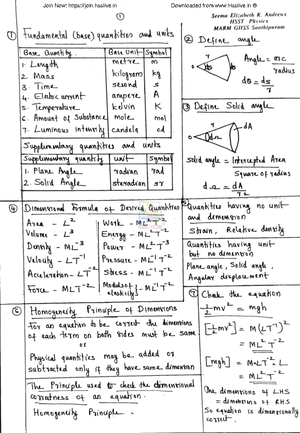 Join Now: https://join.hsslive.in
Downloaded from www.Hsslive.in ®
①
Seema Elizabeth K. Andrews
HSST Physics
MARM GHSS Santhipuram
① Fundamental (base) quantities and units
Base Quantity Base Unit Symbol
1. Length metre m
2. Mass kilogram kg
3. Time second s
4. Electric current ampere A
5. Temperature kelvin K
6. Amount of Substance mole mol
7. Luminous intensity candela cd
Supplementary quantities and units
Supplementary quantity unit Symbol
1. Plane Angle radian rad
2. Solid Angle steradian sr
② Define angle
Angle = arc / radius
dθ = ds / r
③ Define Solid angle
r
dA
Solid angle = Intercepted Area / Square of radius
dΩ = dA / r²
④ Dimensional Formula of Derived Quantities
Area - L²
Volume - L³
Density - ML⁻³
Velocity - LT⁻¹
Acceleration - LT⁻²
Force - MLT⁻²
Work - ML²T⁻²
Energy - ML²T⁻²
Power - ML²T⁻³
Pressure - ML⁻¹T⁻²
Stress - ML⁻¹T⁻²
Modulus of elasticity } ML⁻¹T⁻²
⑤ Quantities having no unit
and demension
Strain, Relative density
Quantities having unit
but no dimension
Plane angle, Solid angle
Angular displacement
⑥ Homogeneity Principle of Dimensions
For an equation to be correct the dimensions
of each term on both sides must be same
or
Physical quantities may be added or
subtracted only if they have same dimension
The Principle used to check the dimensional
correctness of an equation.
Homogeneity Principle.
⑦ Check the equation
½mv² = mgh
[½mv²] = M(LT⁻¹)²
= ML²T⁻²
[mgh] = M LT⁻² L
= ML²T⁻²
The dimensions of LHS
= dimensions of RHS
So equation is dimensionally
correct.